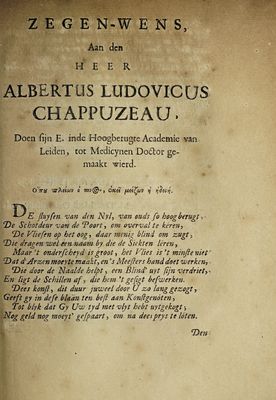 ZEGEN-WENS,
Aan den
HEER
ALBERTUS LUDOVICUS
CHAPPUZEAU,
Doen sijn E. inde Hoogberugte Academie van
Leiden, tot Medicynen Doctor ge-
maakt wierd.
DE stuysen van den Nyl, van ouds so hoog berugt,
De Schotdeur van de Poort, om overwal te keren,
De Vliesen op het oog, daar menig blind om zugt,
Die dragen wel een naam by die de Sickten leren,
Maar 't onderscheyd is groot, het Vlies is 't minste niet
Dat d'Arzen moeyte maakt, en 's Meesters hand doet werken,
Die door de Naalde helpt, een Blind' uyt sijn verdriet,
En ligt de Schillen af, die hem 't gesigt beswerken.
Dees konst, dit duur juweel door U zo lang gezogt,
Geeft gy in dese blaan ten best aan Konstgenoten,
Tot blik dat Gy Uw tyd met vlyt hebt uytgekogt,
Nog geld nog moeyt' gespaart, om na dees prys te loten.
Den